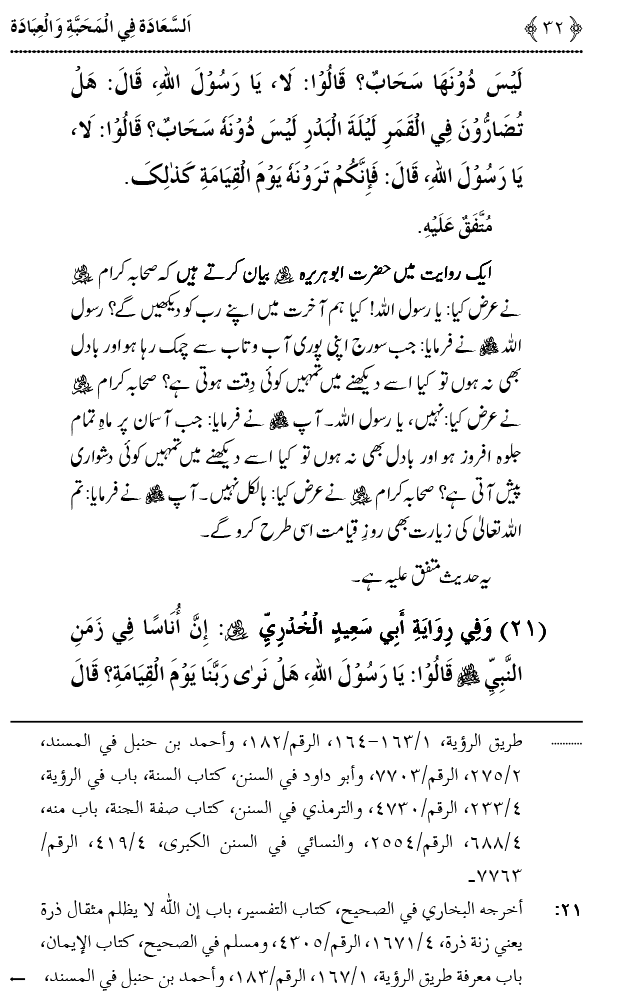 اَلسَّعَادَة فِي الْمَحَبَّةِ وَالْعِبَادَة ﴿٣٢﴾
لَيْسَ دُوْنَهَا سَحَابٌ؟ قَالُوْا: لَا، يَا رَسُوْلَ اللهِ، قَالَ: هَلْ
تُضَارُّوْنَ فِي الْقَمَرِ لَيْلَةَ الْبَدْرِ لَيْسَ دُوْنَهٗ سَحَابٌ؟ قَالُوْا: لَا،
يَا رَسُوْلَ اللهِ، قَالَ: فَإِنَّكُمْ تَرَوْنَهٗ يَوْمَ الْقِيَامَةِ كَذٰلِكَ.
مُتَّفَقٌ عَلَيْهِ.
ایک روایت میں حضرت ابوہریرہ ﷛ بیان کرتے ہیں کہ صحابہ کرام ﷛
نے عرض کیا: یا رسول اللہ! کیا ہم آخرت میں اپنے رب کو دیکھیں گے؟ رسول
اللہ ﷺ نے فرمایا: جب سورج اپنی پوری آب و تاب سے چمک رہا ہو اور بادل
بھی نہ ہوں تو کیا اسے دیکھنے میں تمہیں کوئی دِقت ہوتی ہے؟ صحابہ کرام ﷛
نے عرض کیا: نہیں، یا رسول اللہ۔ آپ ﷺ نے فرمایا: جب آسمان پر ماہِ تمام
جلوہ افروز ہو اور بادل بھی نہ ہوں تو کیا اسے دیکھنے میں تمہیں کوئی دشواری
پیش آتی ہے؟ صحابہ کرام ﷛ نے عرض کیا: بالکل نہیں۔ آپ ﷺ نے فرمایا: تم
اللہ تعالیٰ کی زیارت بھی روزِ قیامت اسی طرح کرو گے۔
یہ حدیث متفق علیہ ہے۔
(٢١) وَفِي رِوَايَةِ أَبِي سَعِيدٍ الْخُدْرِيِّ ﷛: إِنَّ أُنَاسًا فِي زَمَنِ
النَّبِيِّ ﷺ قَالُوْا: يَا رَسُوْلَ اللهِ، هَلْ نَرٰى رَبَّنَا يَوْمَ الْقِيَامَةِ؟ قَالَ
........... طريق الرؤية، ١/١٦٣-١٦٤، الرقم/١٨٢، وأحمد بن حنبل في المسند،
٢/٢٧٥، الرقم/٧٧٠٣، وأبو داود في السنن، كتاب السنة، باب في الرؤية،
٤/٢٣٣، الرقم/٤٧٣٠، والترمذي في السنن، كتاب صفة الجنة، باب منه،
٤/٦٨٨، الرقم/٢٥٥٤، والنسائي في السنن الكبرى، ٤/٤١٩، الرقم/
٧٧٦٣ـ
٢١: أخرجه البخاري في الصحيح، كتاب التفسير، باب إن الله لا يظلم مثقال ذرة
يعني زنة ذرة، ٤/١٦٧١، الرقم/٤٣٠٥، ومسلم في الصحيح، كتاب الإيمان،
باب معرفة طريق الرؤية، ١/١٦٧، الرقم/١٨٣، وأحمد بن حنبل في المسند، ←